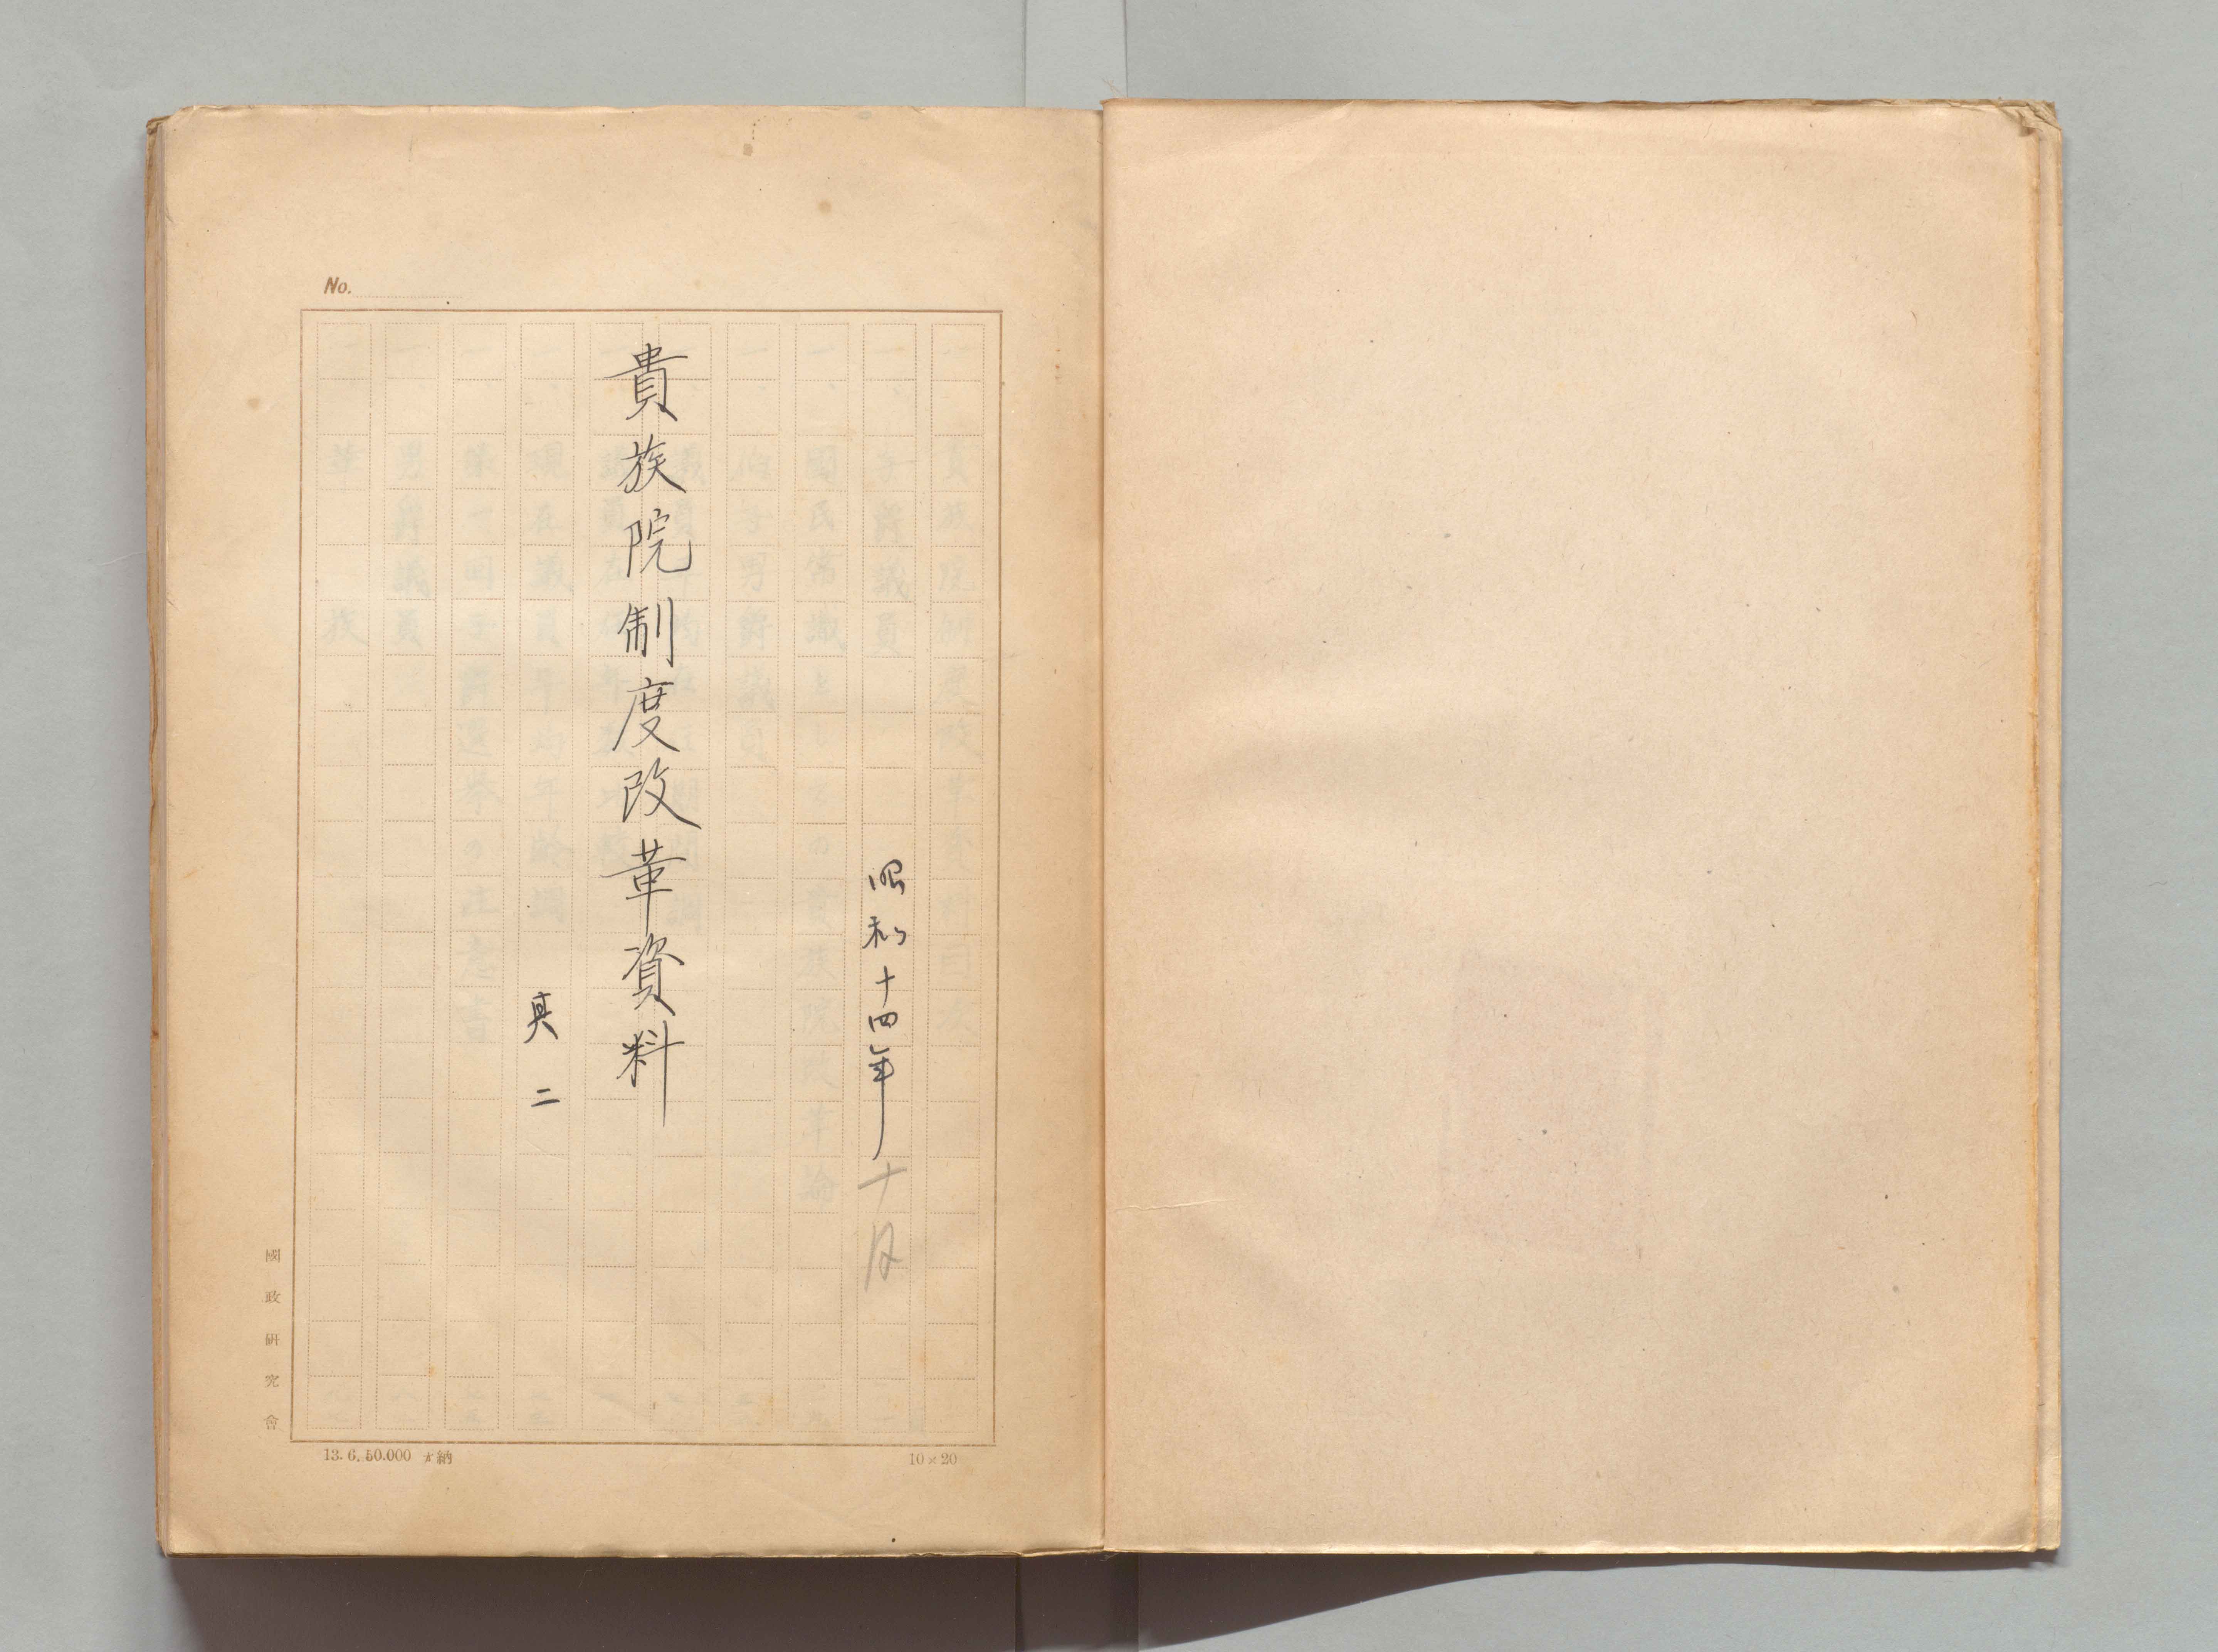 No.
昭和十四年十月
貴族院制度改革資料
其二
國政研究會
13. 6. 50.000 納
10×20